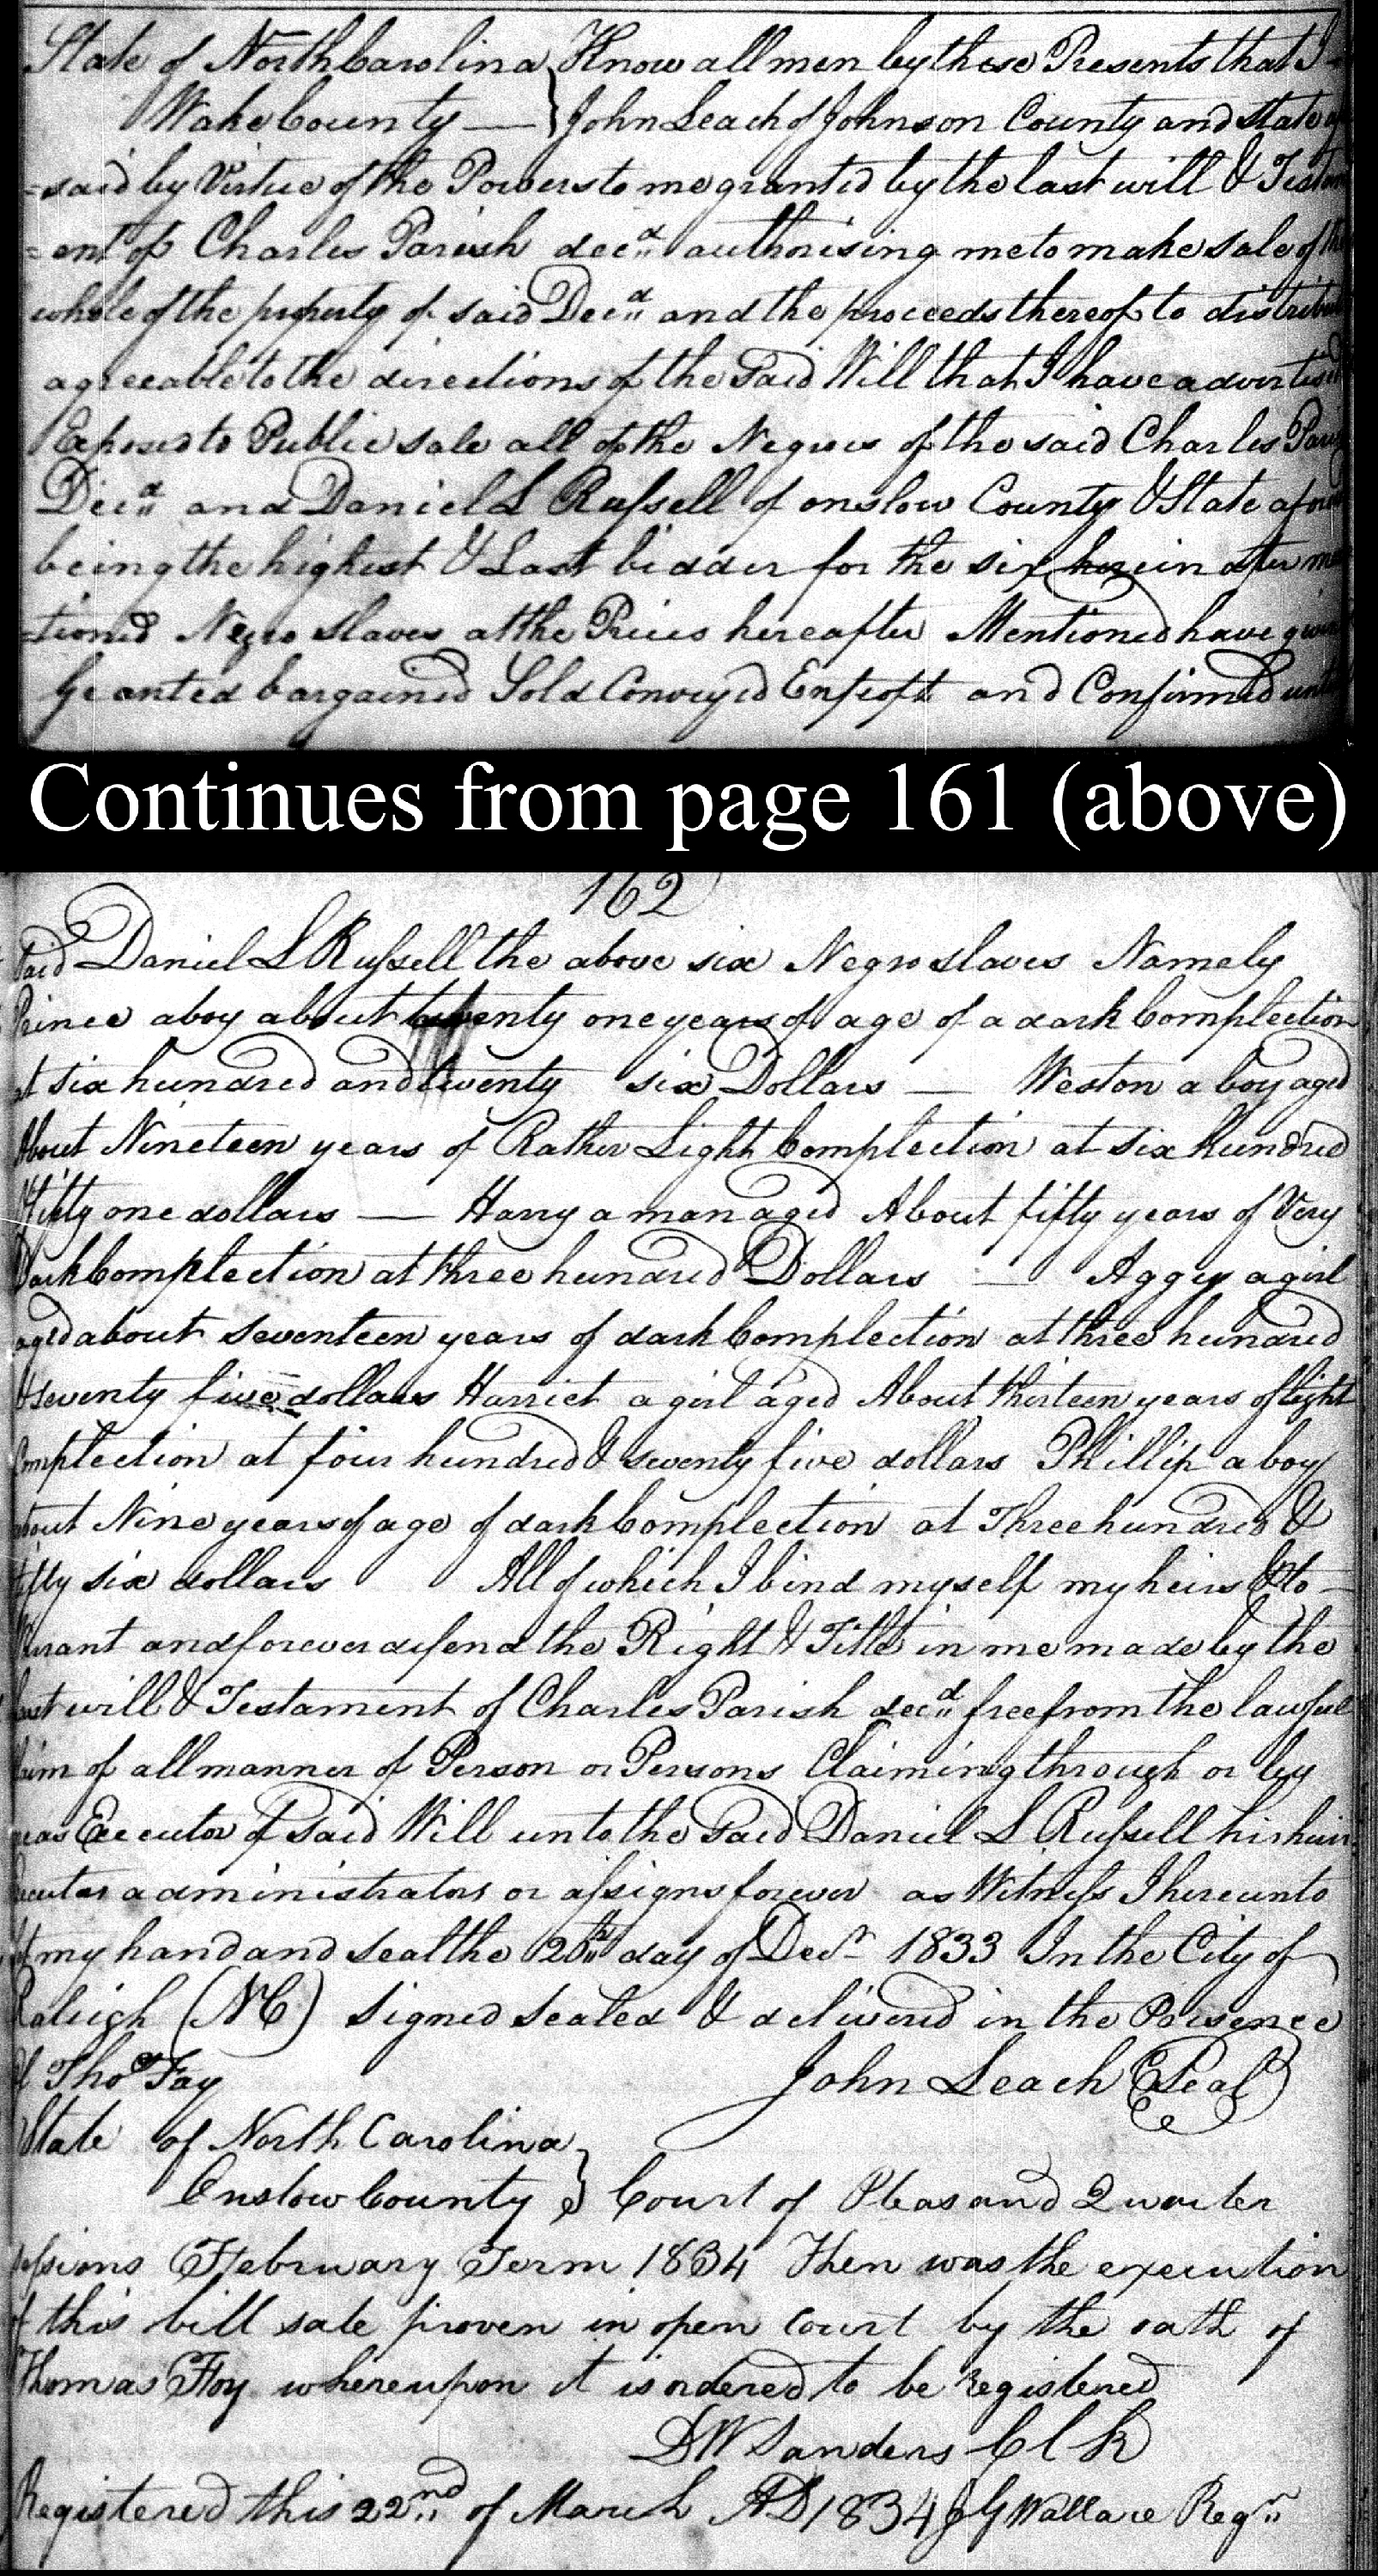 State of North Carolina } Know all men by these Presents that I
Wake County — } John Leach of Johnson County and State
=said by Virtue of the Powers to me granted by the last will &
=ent of Charles Parish decd authorising me to make sale of
whole of the property of said Decd and the proceeds thereof to
agreeable to the directions of the Said Will that I have
Exposed to Public sale all of the Negroes of the said Charles
Decd and Daniel L Russell of onslow County & State
being the highest & Last bidder for the six herein after
=tioned Negro slaves at the Prices hereafter Mentioned have
Granted bargained Sold Conveyed Enfeoft and Confirmed
Continues from page 161 (above)
162
Said Daniel L Russell the above six Negro slaves Namely
Prince a boy about twenty one years of age of a dark Complection
at six hundred and twenty six Dollars — Weston a boy aged
About Nineteen years of Rather Light Complection at six hundred
& fifty one dollars — Harry a man aged About fifty years of Very
Dark Complection at three hundred Dollars — Aggy a girl
aged about seventeen years of dark Complection at three hundred
& seventy five dollars Harriet a girl aged About thirteen years of light
Complection at four hundred & seventy five dollars Phillip a boy
about Nine years of age of dark Complection at Three hundred &
fifty six dollars All of which I bind myself my heirs &c to —
Warant and forever defend the Right & Title in me made by the
last will & Testament of Charles Parish decd free from the lawful
claim of all manner of Person or Persons Claiming through or by
me as Executor of Said Will unto the Said Daniel L Russell his heirs
Executor administrators or assigns forever as Witness I hereunto
set my hand and seal the 20th day of Decr 1833 In the City of
Raleigh (NC) Signed Sealed & delivered in the Poisence
of Thos Foy John Leach (Seal)
State of North Carolina }
Onslow County } Court of Pleas and Quarter
sessions February Term 1834 Then was the execution
of this bill sale proven in open court by the oath of
Thomas Foy whereupon it is ordered to be Registered
DW Sanders Clk
Registered this 22nd of March AD 1834 JG Wallace Regr